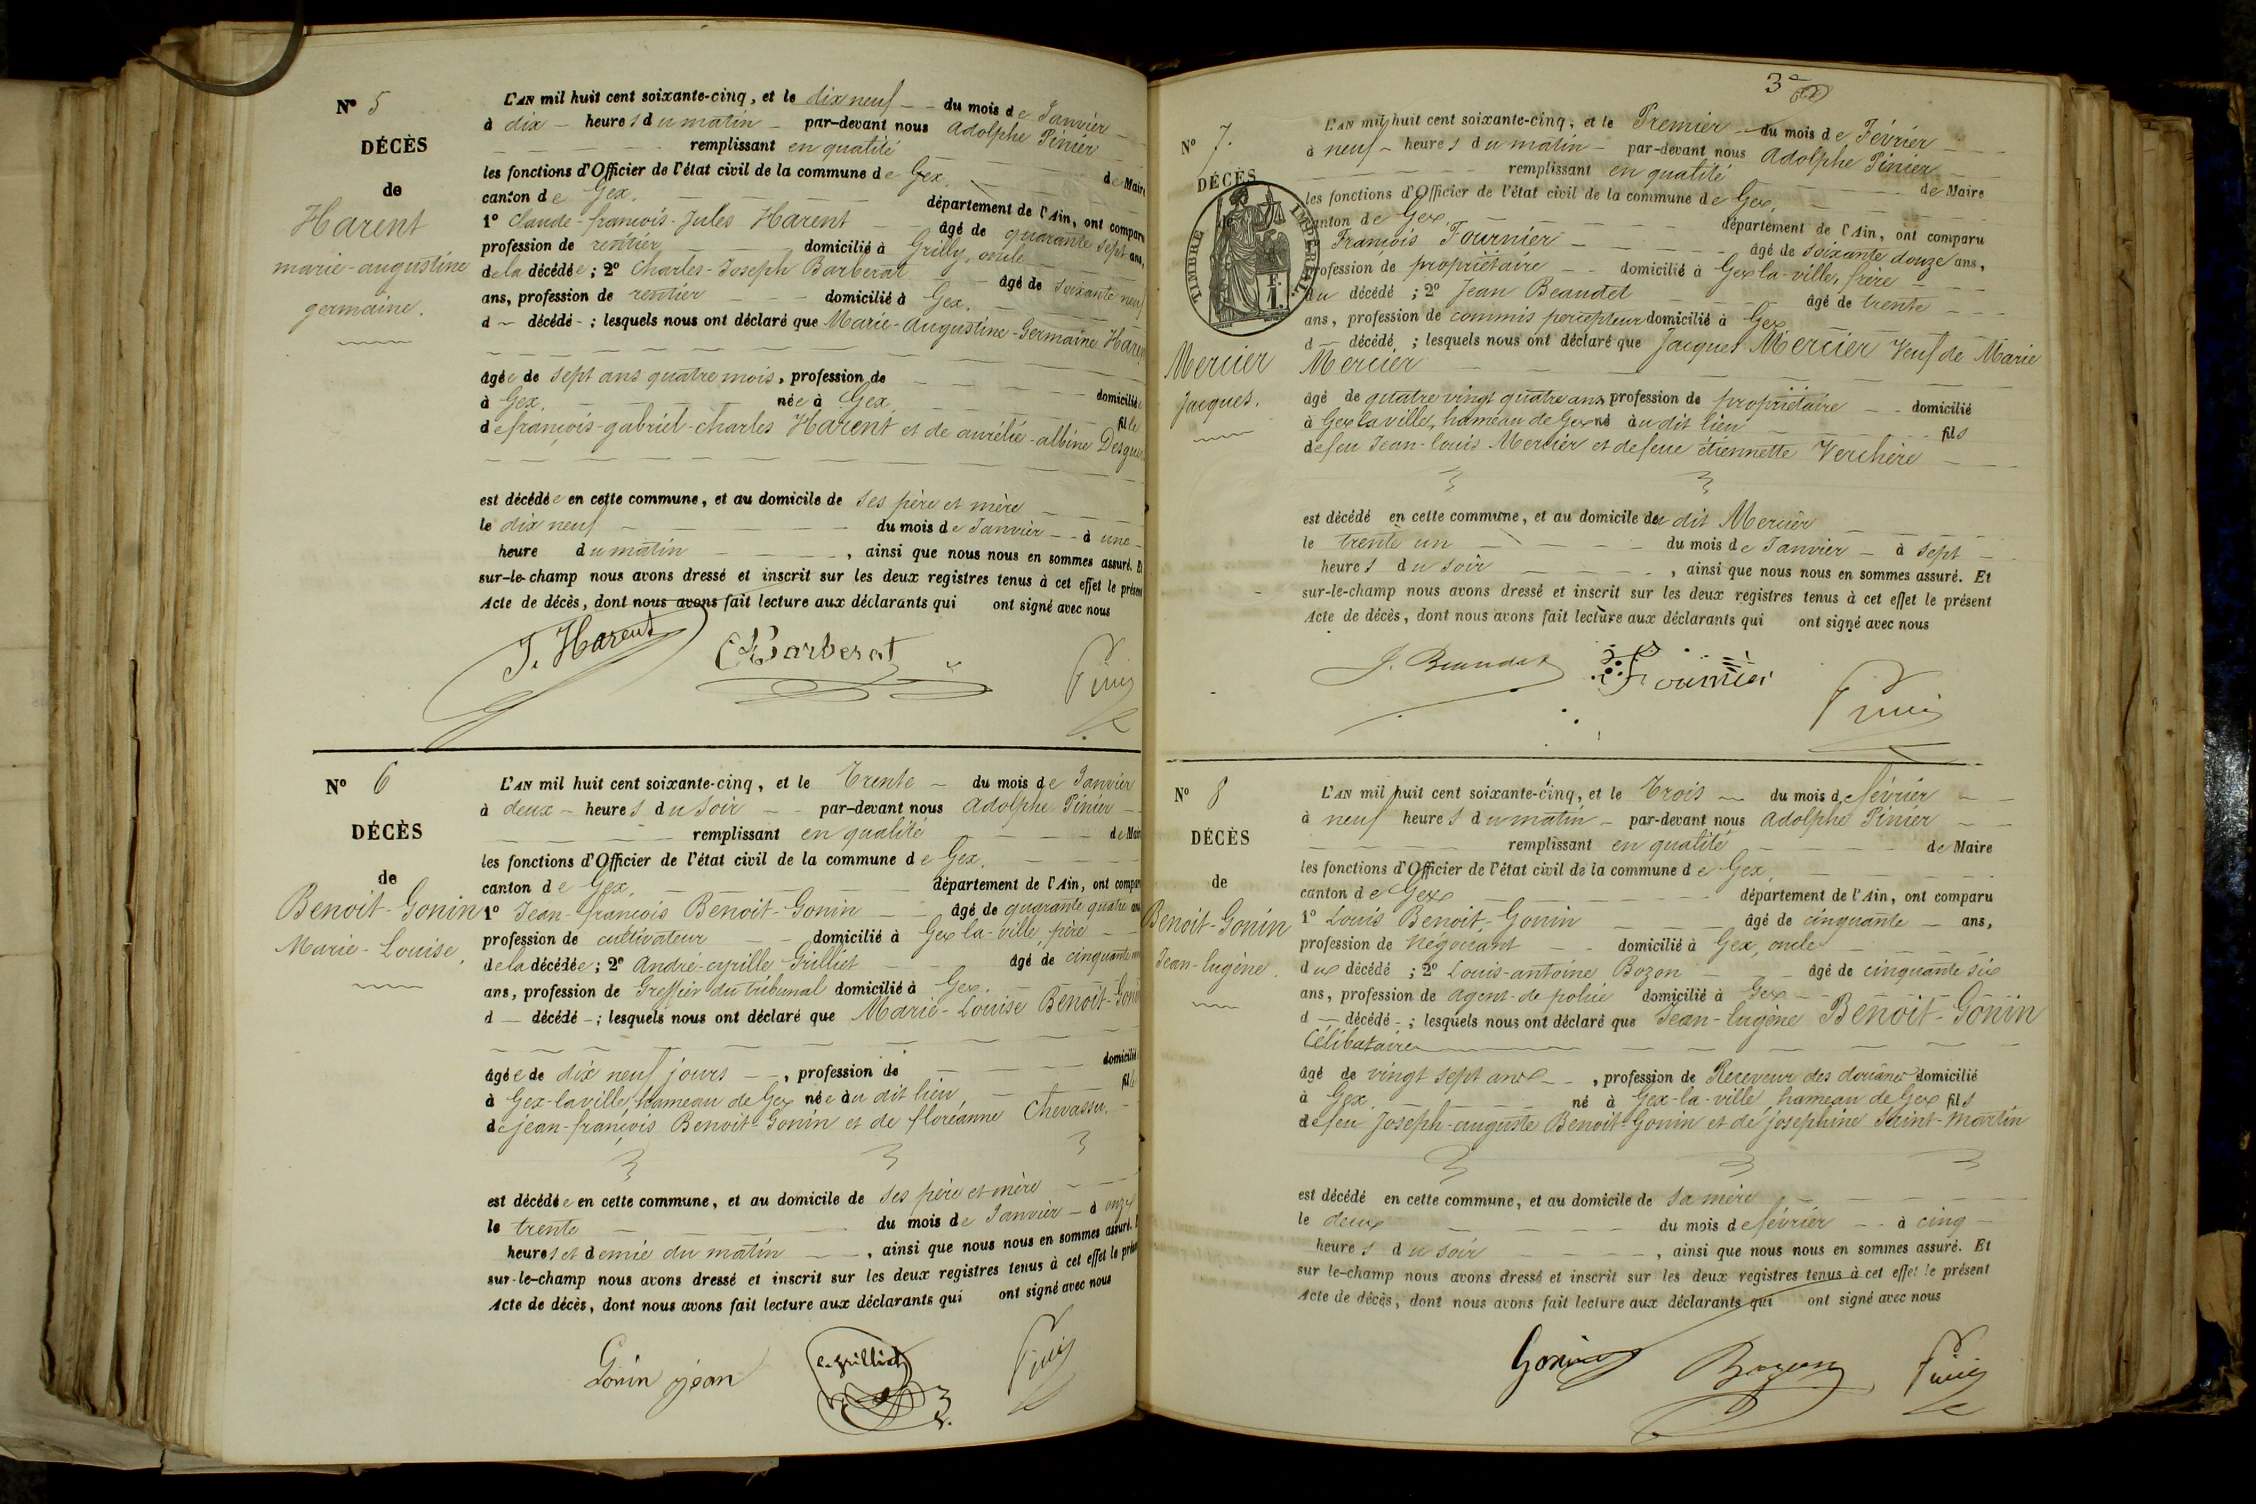 N° 5
DÉCÈS
de
Harent
marie-augustine
germaine.
L'AN mil huit cent soixante-cinq, et le dix neuf du mois de Janvier
à dix heures du matin par-devant nous Adolphe Pinier
remplissant en qualité de Maire
les fonctions d'Officier de l'état civil de la commune de Gex.
canton de Gex. département de l'Ain, ont comparu
1° Claude-françois-Jules Harent âgé de quarante sept ans,
profession de rentier domicilié à Grilly, oncle
de la décédée ; 2° Charles-Joseph Barberat âgé de soixante neuf
ans, profession de rentier domicilié à Gex.
d décédé ; lesquels nous ont déclaré que Marie-Augustine-Germaine Harent
âgée de sept ans quatre mois, profession de domiciliée
à Gex. née à Gex. fille
de françois-gabriel-charles Harent et de aurélie-albine
est décédée en cette commune, et au domicile de ses père et mère
le dix neuf du mois de Janvier à une
heure du matin, ainsi que nous nous en sommes assuré. Et
sur-le-champ nous avons dressé et inscrit sur les deux registres tenus à cet effet le présent
Acte de décès, dont nous avons fait lecture aux déclarants qui ont signé avec nous
J. Harent Barberat Pinier
N° 6
DÉCÈS
de
Benoit-Gonin
Marie-Louise.
L'AN mil huit cent soixante-cinq, et le Trente du mois de Janvier
à deux heures du soir par-devant nous Adolphe Pinier
remplissant en qualité de Maire
les fonctions d'Officier de l'état civil de la commune de Gex.
canton de Gex. département de l'Ain, ont comparu
1° Jean-françois Benoit-Gonin âgé de quarante quatre ans
profession de cultivateur domicilié à Gex la-ville, père
de la décédée ; 2° André-cyrille Grilliet âgé de cinquante
ans, profession de Greffier du tribunal domicilié à Gex.
d décédé ; lesquels nous ont déclaré que Marie-Louise Benoit-Gonin
âgée de dix neuf jours, profession de domiciliée
à Gex-la-ville, hameau de Gex née au dit lieu fille
de jean-françois Benoit-Gonin et de floréanne Chevassu.
est décédée en cette commune, et au domicile de ses père et mère
le trente du mois de Janvier à onze
heures et demie du matin, ainsi que nous nous en sommes assuré. Et
sur-le-champ nous avons dressé et inscrit sur les deux registres tenus à cet effet le présent
Acte de décès, dont nous avons fait lecture aux déclarants qui ont signé avec nous
Gonin jean C. Grilliet Pinier
3e
N° 7.
DÉCÈS
TIMBRE IMPÉRIAL.
Mercier
Jacques.
L'AN mil huit cent soixante-cinq, et le Premier du mois de Février
à neuf heures du matin par-devant nous Adolphe Pinier
remplissant en qualité de Maire
les fonctions d'Officier de l'état civil de la commune de Gex,
canton de Gex. département de l'Ain, ont comparu
François Fournier âgé de soixante douze ans,
profession de propriétaire domicilié à Gex la-ville, frère
du décédé ; 2° Jean Beaudet âgé de trente
ans, profession de commis percepteur domicilié à Gex
d décédé ; lesquels nous ont déclaré que Jacques Mercier Veuf de Marie
Mercier
âgé de quatre vingt quatre ans profession de propriétaire domicilié
à Gex la ville, hameau de Gex né au dit lieu fils
de feu Jean-louis Mercier et de feue étiennette Verchère
est décédé en cette commune, et au domicile du dit Mercier
le trente un du mois de Janvier à sept
heures du soir, ainsi que nous nous en sommes assuré. Et
sur-le-champ nous avons dressé et inscrit sur les deux registres tenus à cet effet le présent
Acte de décès, dont nous avons fait lecture aux déclarants qui ont signé avec nous
J. Beaudet Fournier Pinier
N° 8
DÉCÈS
de
Benoit-Gonin
Jean-Eugène.
L'AN mil huit cent soixante-cinq, et le Trois du mois de février
à neuf heures du matin par-devant nous Adolphe Pinier
remplissant en qualité de Maire
les fonctions d'Officier de l'état civil de la commune de Gex,
canton de Gex département de l'Ain, ont comparu
1° Louis Benoit-Gonin âgé de cinquante ans,
profession de négociant domicilié à Gex, oncle
du décédé ; 2° Louis-antoine Bozon âgé de cinquante six
ans, profession de agent-de police domicilié à Gex
d décédé ; lesquels nous ont déclaré que Jean-Eugène Benoit-Gonin
Célibataire
âgé de vingt sept ans, profession de Receveur des douanes domicilié
à Gex. né à Gex-la-ville hameau de Gex fils
de feu Joseph-auguste Benoit-Gonin et de josephine Saint-Martin
est décédé en cette commune, et au domicile de sa mère
le deux du mois de février à cinq
heures du soir, ainsi que nous nous en sommes assuré. Et
sur le-champ nous avons dressé et inscrit sur les deux registres tenus à cet effet le présent
Acte de décès, dont nous avons fait lecture aux déclarants qui ont signé avec nous
Gonin Bozon Pinier